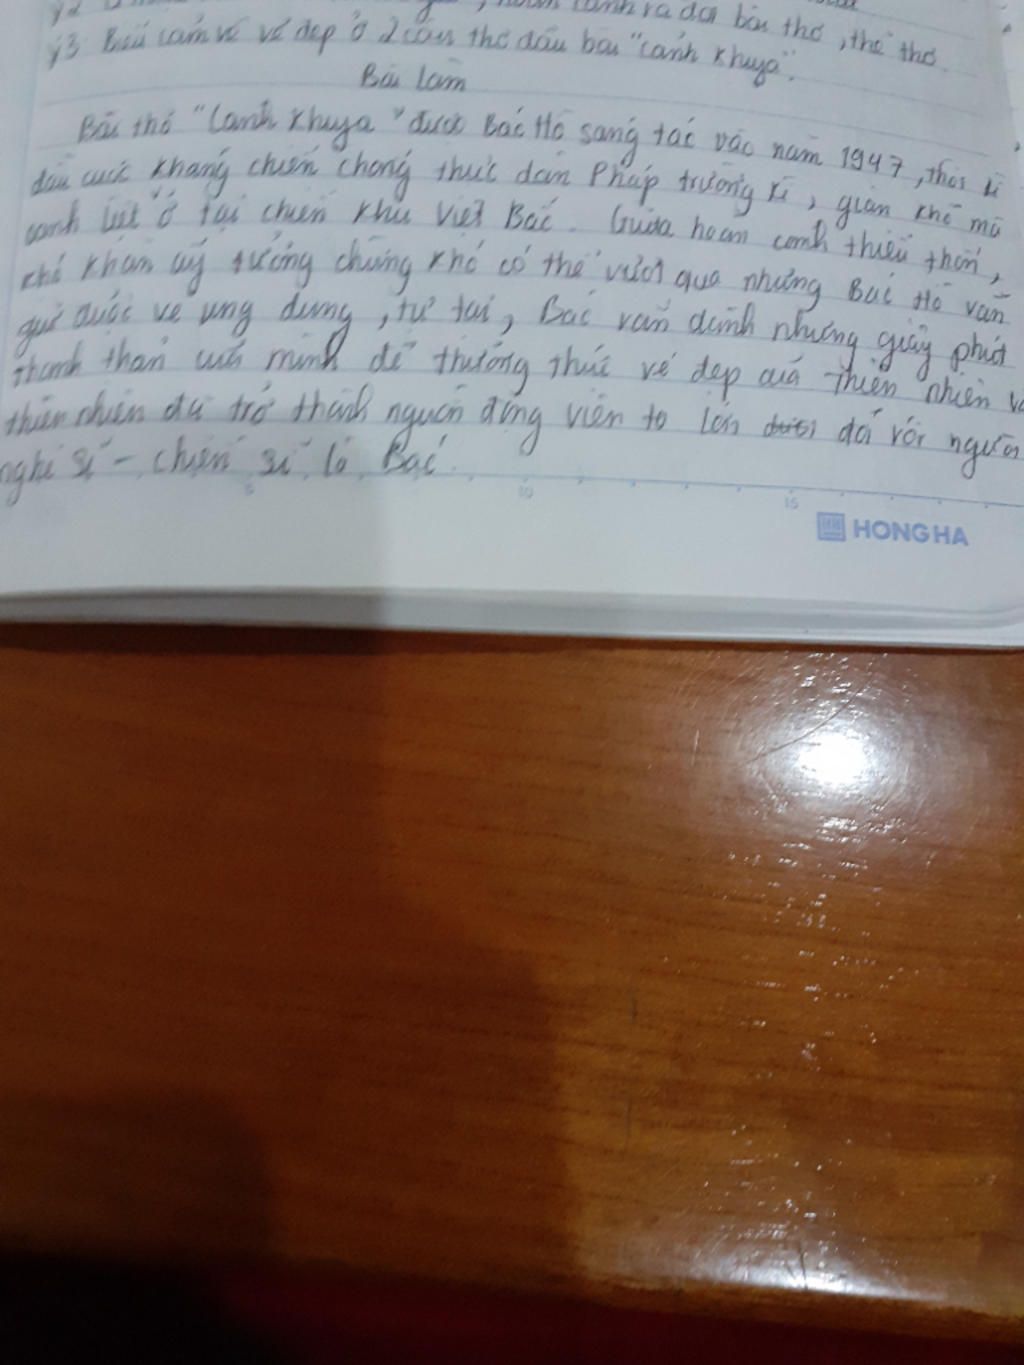 ra đời bài thơ, thể thơ
ý3 Biểu cảm về vẻ đẹp ở 2 câu thơ đầu bài "cảnh khuya".
Bài làm
Bài thơ "Cảnh khuya" được Bác Hồ sáng tác vào năm 1947, thời kì
đầu cuộc kháng chiến chống thực dân Pháp trường kì, gian khổ mà
oanh liệt ở tại chiến khu Việt Bắc. Giữa hoàn cảnh thiếu thốn,
khó khăn ấy tưởng chừng khó có thể vượt qua nhưng Bác Hồ vẫn
giữ được vẻ ung dung, tự tại, Bác vẫn dành những giây phút
thanh thản của mình để thưởng thức vẻ đẹp của thiên nhiên và
thiên nhiên đã trở thành nguồn động viên to lớn đối với người
nghệ sĩ - chiến sĩ là Bác.
5 10 15
HONG HA